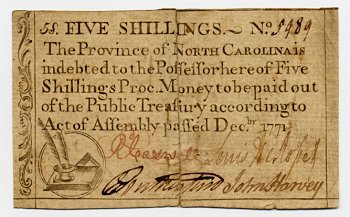 5S. FIVE SHILLINGS. No. 5989
The Province of NORTH CAROLINA is
indebted to the Possessor hereof Five
Shillings Proc. Money to be paid out
of the Public Treasury according to
Act of Assembly passed Dec.br 1771
Lewis De Rosset
John Harvey